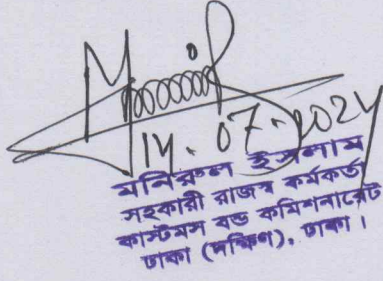 14.07.2024
মনিরুল ইসলাম
সহকারী রাজস্ব কর্মকর্তা
কাস্টমস বন্ড কমিশনারেট
ঢাকা (দক্ষিণ), ঢাকা।